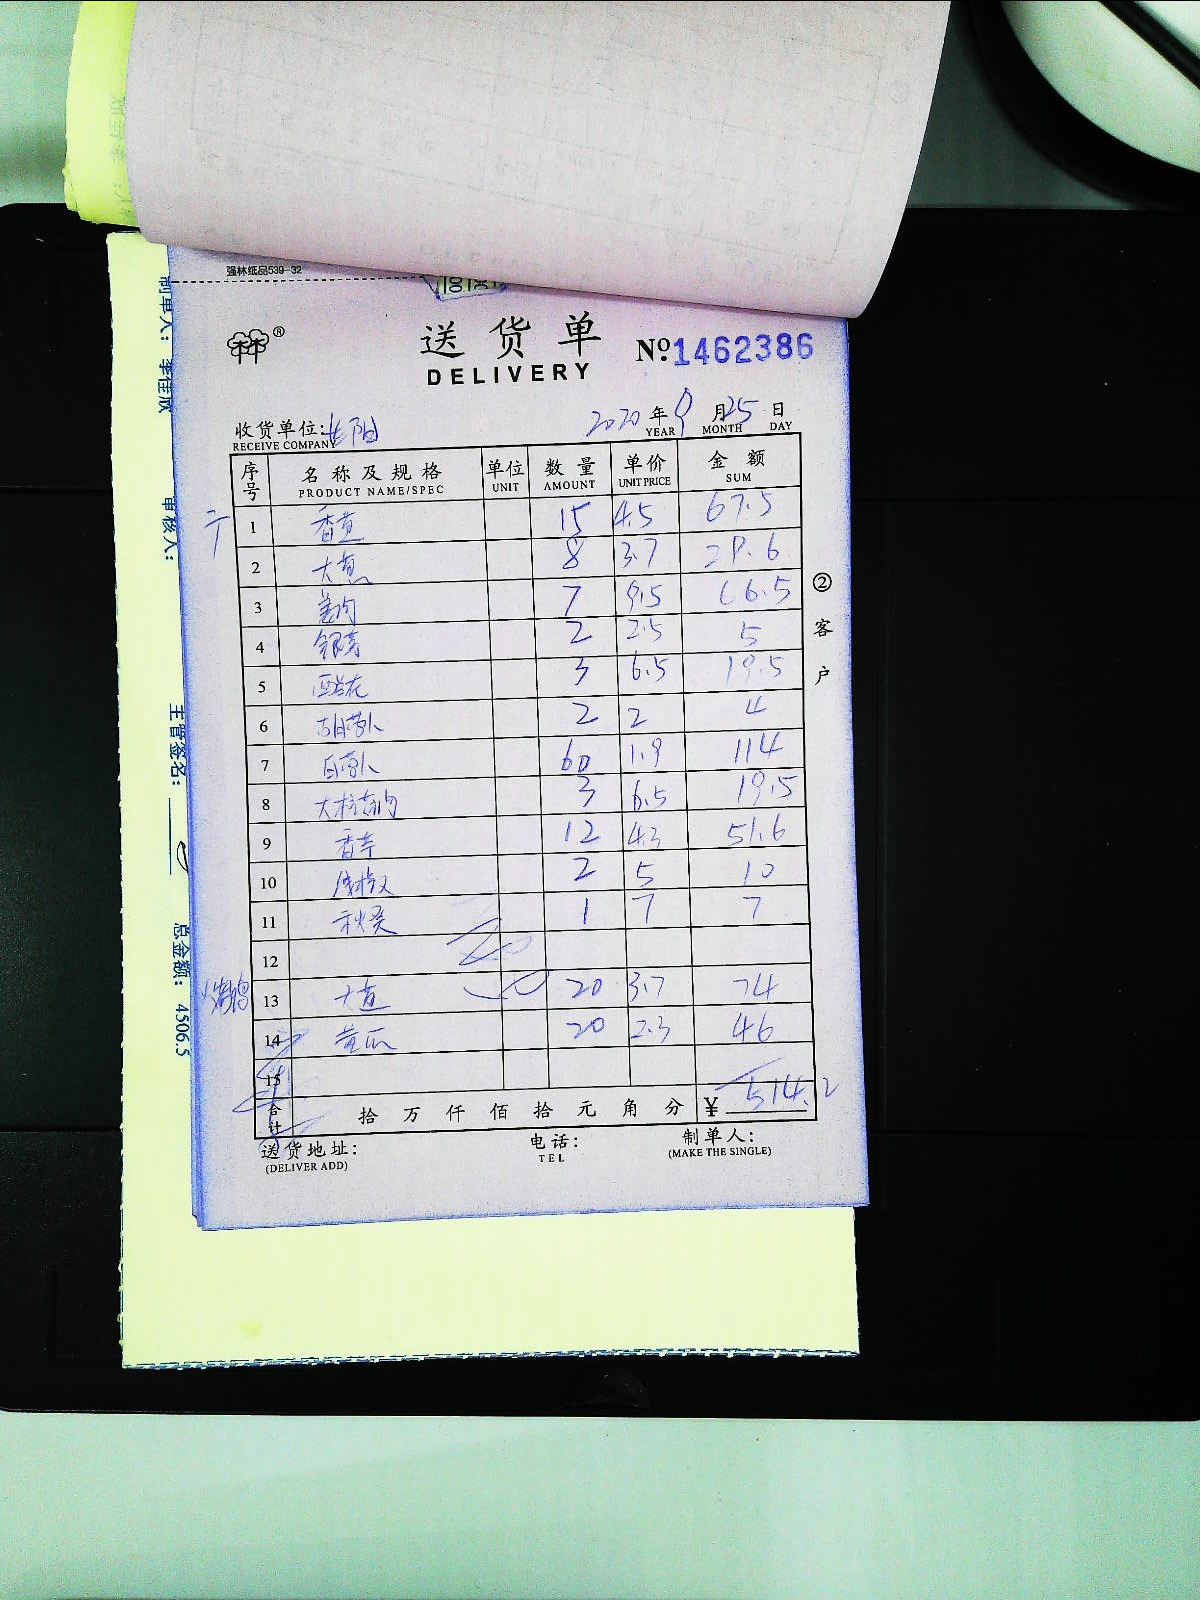 强林纸品539-32
送货单
DELIVERY
№1462386
收货单位:
RECEIVE COMPANY
2020 年 9 月 25 日
YEAR MONTH DAY
序号 名称及规格 单位 数量 单价 金额
PRODUCT NAME/SPEC UNIT AMOUNT UNIT PRICE SUM
1 15 4.5 67.5
2 大葱 8 3.7 29.6
3 7 9.5 66.5
4 银芽 2 2.5 5
5 西兰花 3 6.5 19.5
6 胡萝卜 2 2 4
7 白萝卜 60 1.9 114
8 3 6.5 19.5
9 香芹 12 4.3 51.6
10 2 5 10
11 秋葵 1 7 7
12
13 20 3.7 74
14 黄瓜 20 2.3 46
15
合计 拾 万 仟 佰 拾 元 角 分 ¥ 514.2
送货地址: 电话: 制单人:
(DELIVER ADD) TEL (MAKE THE SINGLE)
②客户
制单人: 李佳欣
审核人:
主管签名:
总金额: 4506.5